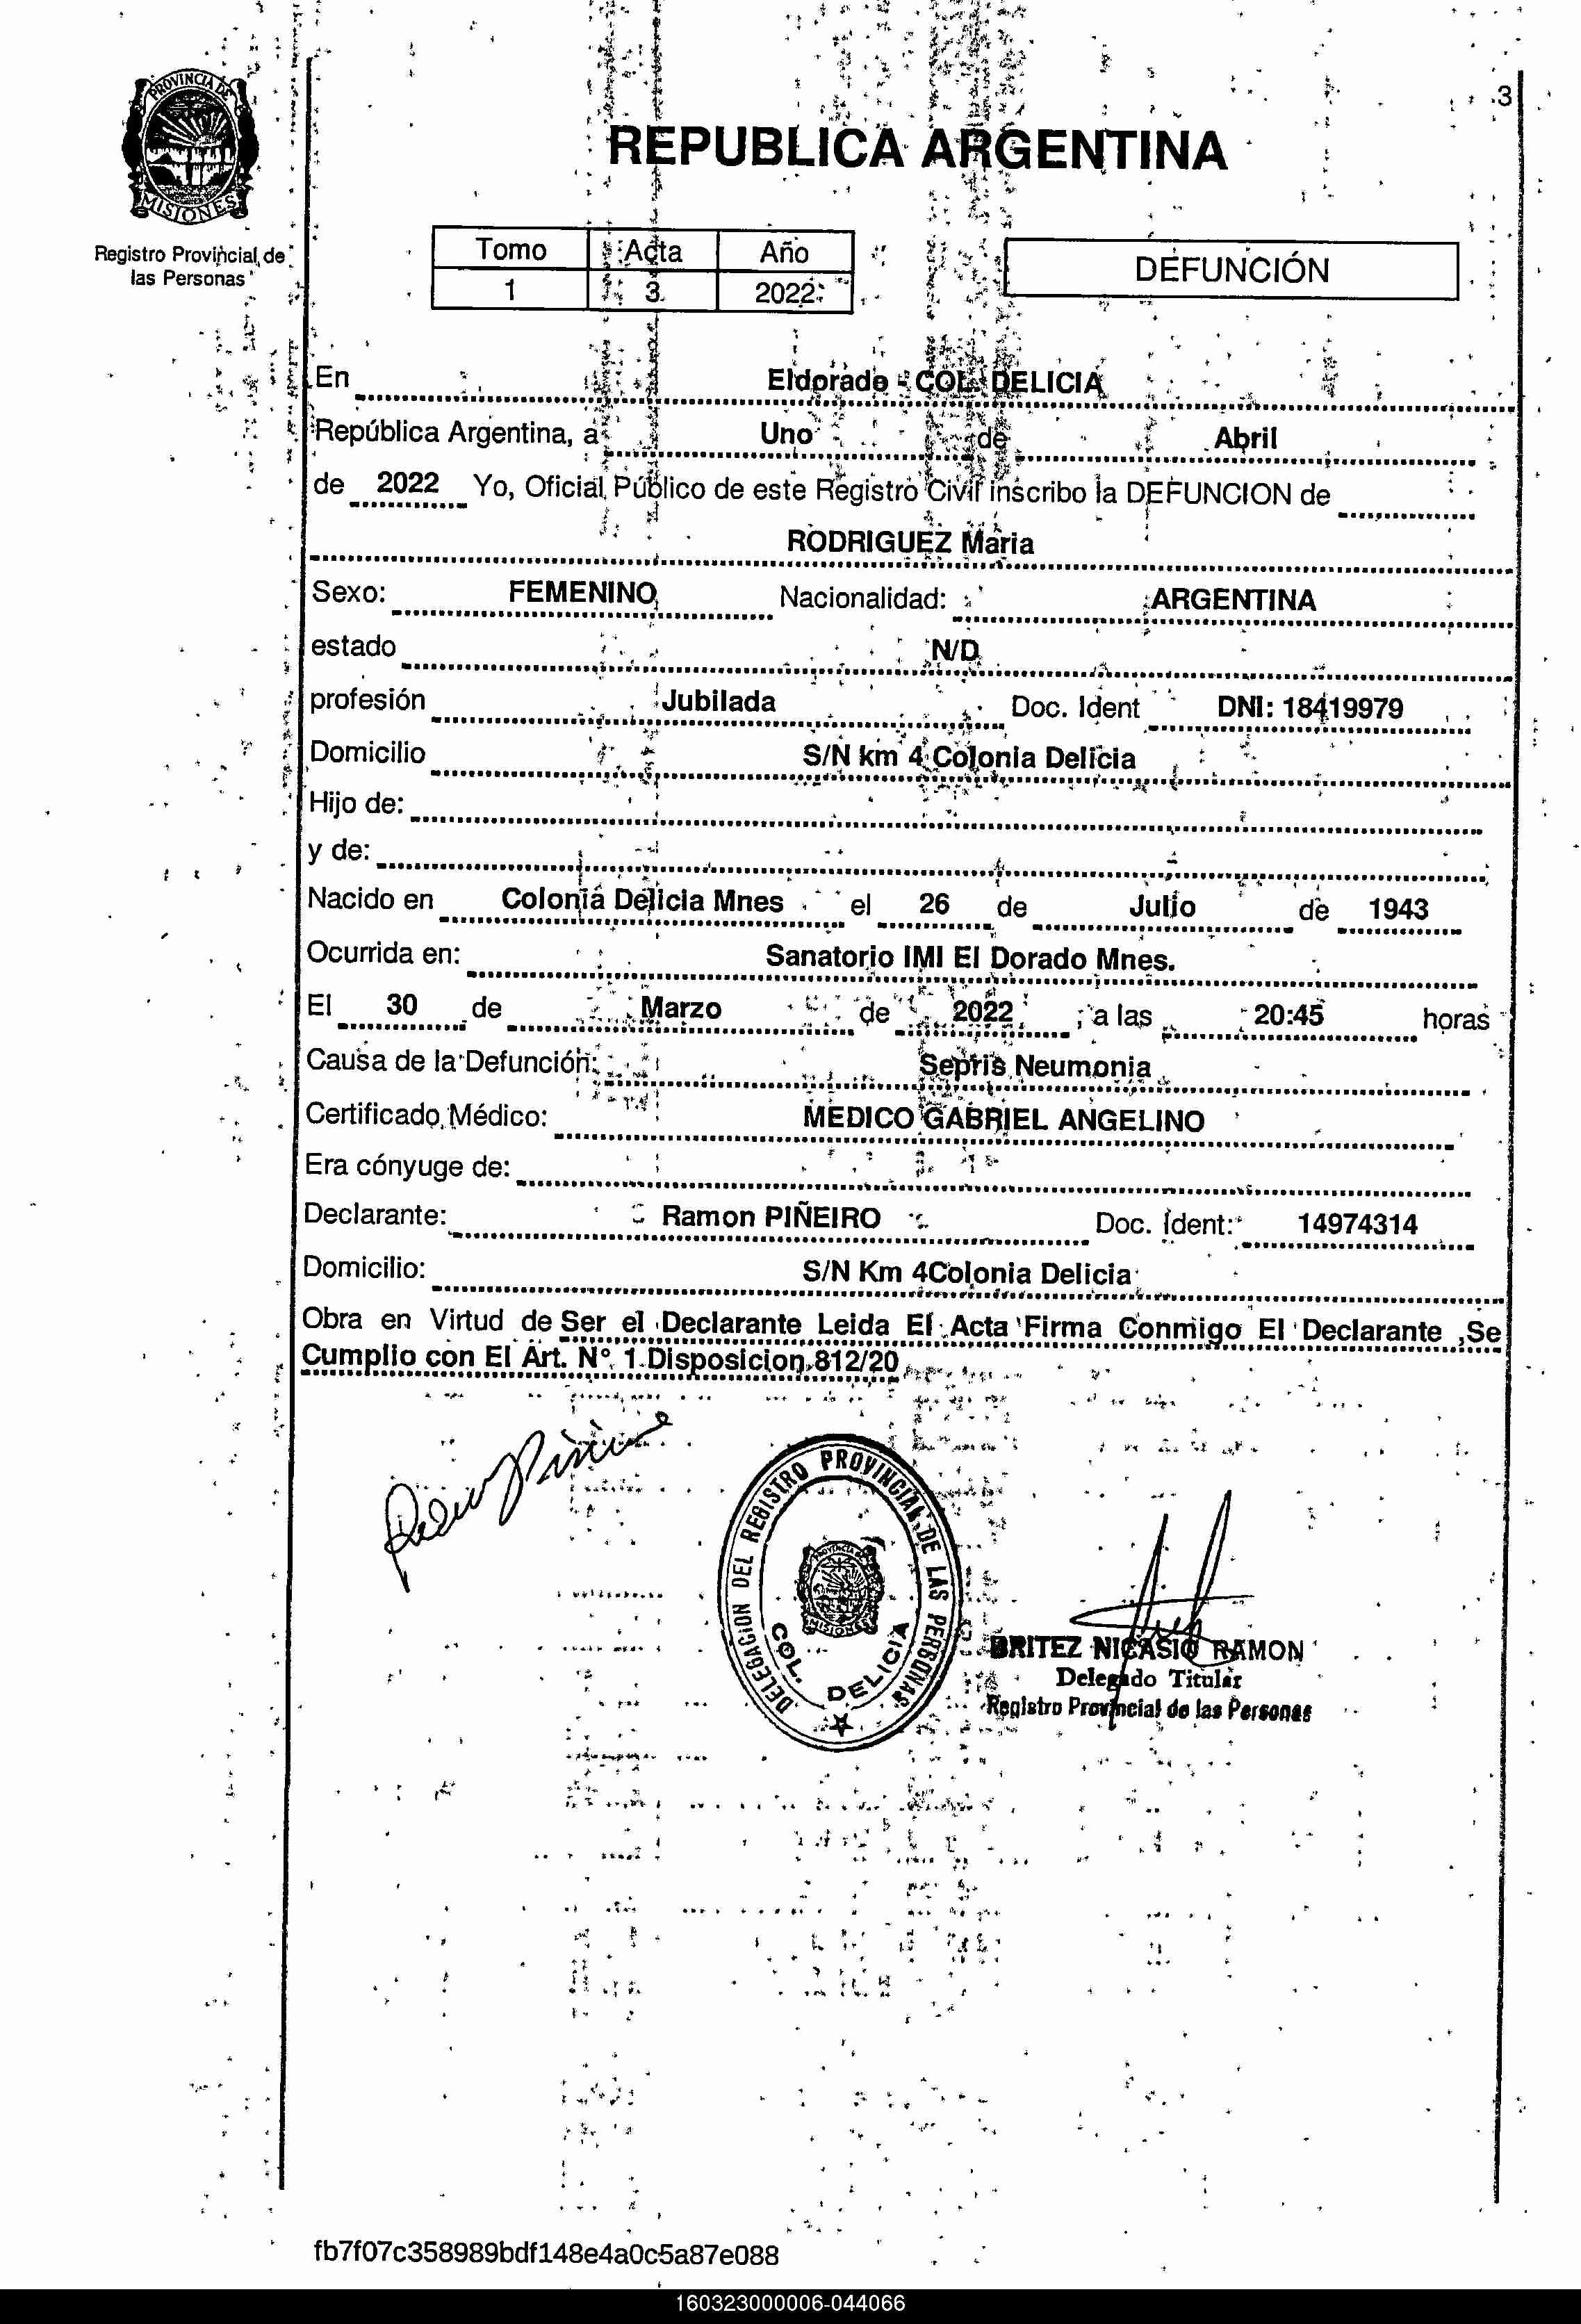 PROVINCIA DE
MISIONES
3
REPUBLICA ARGENTINA
Registro Provincial de
las Personas
Tomo Acta Año
1 3 2022
DEFUNCIÓN
En Eldorado - COL. DELICIA
República Argentina, a Uno de Abril
de 2022 Yo, Oficial Público de este Registro Civil inscribo la DEFUNCION de
RODRIGUEZ Maria
Sexo: FEMENINO Nacionalidad: ARGENTINA
estado N/D
profesión Jubilada Doc. Ident DNI: 18419979
Domicilio S/N km 4 Colonia Delicia
Hijo de:
y de:
Nacido en Colonia Delicia Mnes el 26 de Julio de 1943
Ocurrida en: Sanatorio IMI El Dorado Mnes.
El 30 de Marzo de 2022 a las 20:45 horas
Causa de la Defunción: Septis Neumonia
Certificado Médico: MEDICO GABRIEL ANGELINO
Era cónyuge de:
Declarante: Ramon PIÑEIRO Doc. Ident: 14974314
Domicilio: S/N Km 4Colonia Delicia
Obra en Virtud de Ser el Declarante Leida El Acta Firma Conmigo El Declarante ,Se
Cumplio con El Art. Nº 1 Disposicion 812/20
DELEGACION DEL REGISTRO PROVINCIAL DE LAS PERSONAS
PROVINCIA DE
MISIONES
COL. DELICIA
BRITEZ NICASIO RAMON
Delegado Titular
Registro Provincial de las Personas
fb7f07c358989bdf148e4a0c5a87e088
160323000006-044066